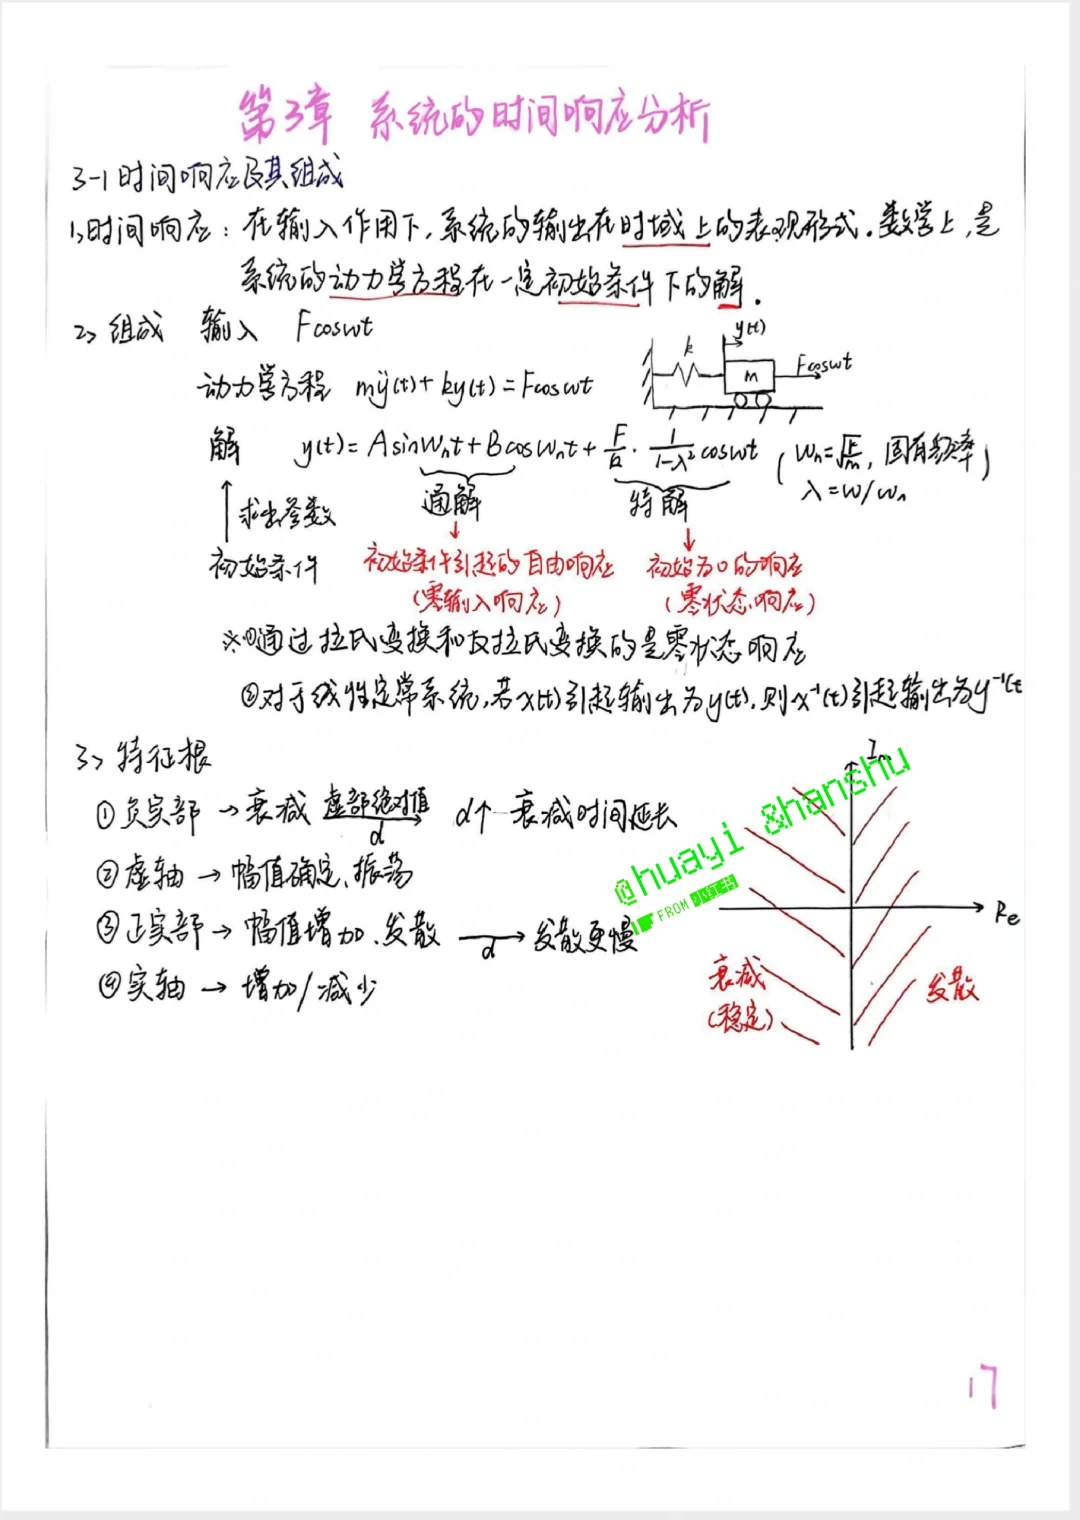 第3章 系统的时间响应分析
3-1 时间响应及其组成
1、时间响应：在输入作用下，系统的输出在时域上的表现形式。数学上，是
系统的动力学方程在一定初始条件下的解．
2、组成 输入 Fcoswt
y(t)
k
m
Fcoswt
动力学方程 mÿ(t)+ky(t)=Fcoswt
解 y(t)=Asinwₙt+Bcoswₙt+F/k·1/(1-λ²)coswt (wₙ=√(k/m)，固有频率)
λ=w/wₙ
求出参数 通解 特解
初始条件 初始条件引起的自由响应 初始为0的响应
(零输入响应) (零状态响应)
※①通过拉氏变换和反拉氏变换的是零状态响应
②对于线性定常系统，若x(t)引起输出为y(t)，则x⁻¹(t)引起输出为y⁻¹(t
3、特征根
Im
①负实部→衰减 虚部绝对值 α α↑ 衰减时间延长
②虚轴→幅值确定、振荡
③正实部→幅值增加、发散 α→发散更慢
④实轴→增加/减少
Re
衰减
(稳定)
发散
@huayi &hanshu
FROM
17